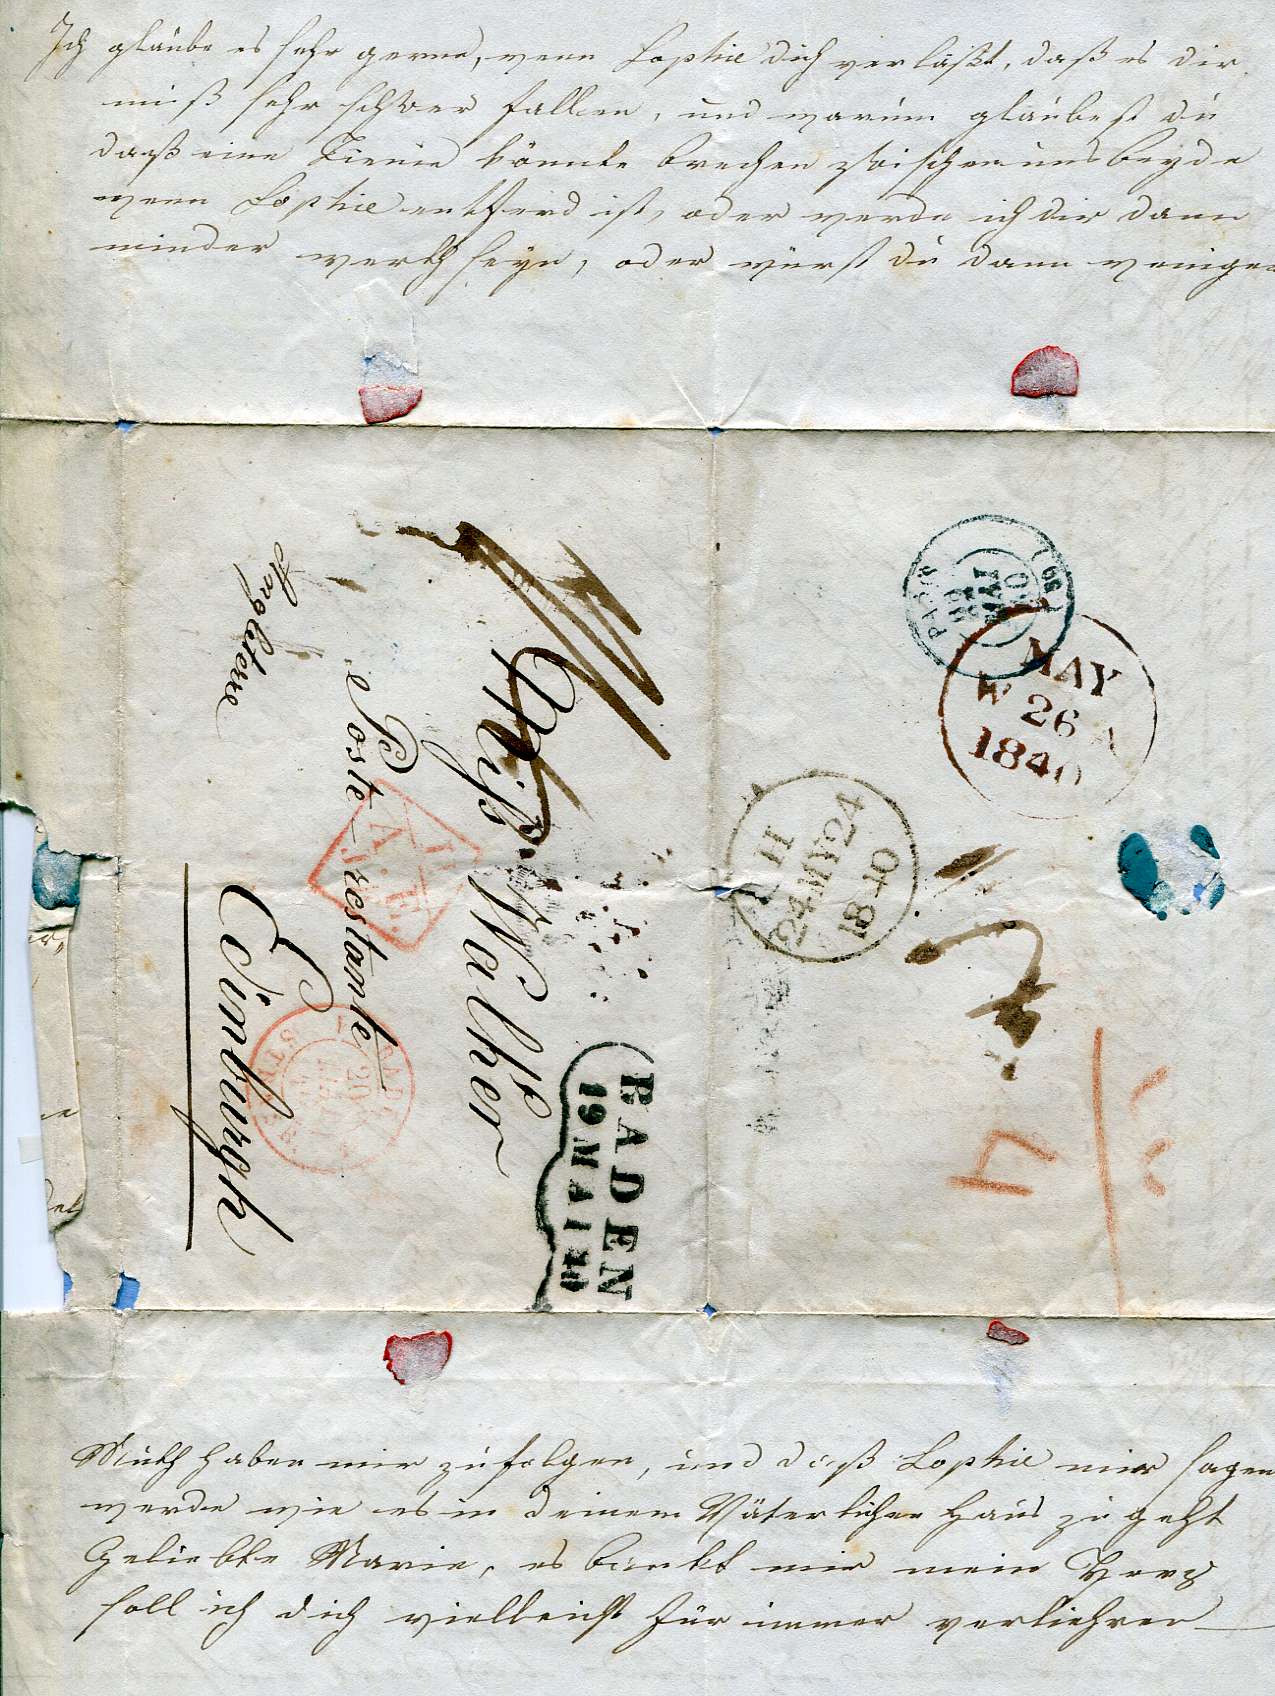 Ich glaube es sehr gerne, wenn Sophie dich verläßt, daß es dir
muß sehr schwer fallen, und warum glaubest du
daß eine könnte brechen zwischen uns beyde
wenn Sophie entfernd ist, oder werde ich dir dann
minder werth seyn, oder wirst du dann weniger
PARIS
MAI
40
(60)
MAY
W 26 A
1840
24 MY 24
1840
4
Miss Walther
Poste restante
Edimburgh
Angleterre
A.E.D.
BADEN
19 MAI
Muth haben mir zu folgen, und daß Sophie mir sagen
werde wie es in deinem Väterlichen Haus zu geht
Geliebte Marie, es mir mein Herz
soll ich dich vielleicht für immer verliehren